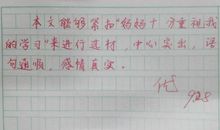 本文能够紧扣“妈妈十分重视我
的学习”来进行选材，中心突出，语
句通顺，感情真实。
优
9.28